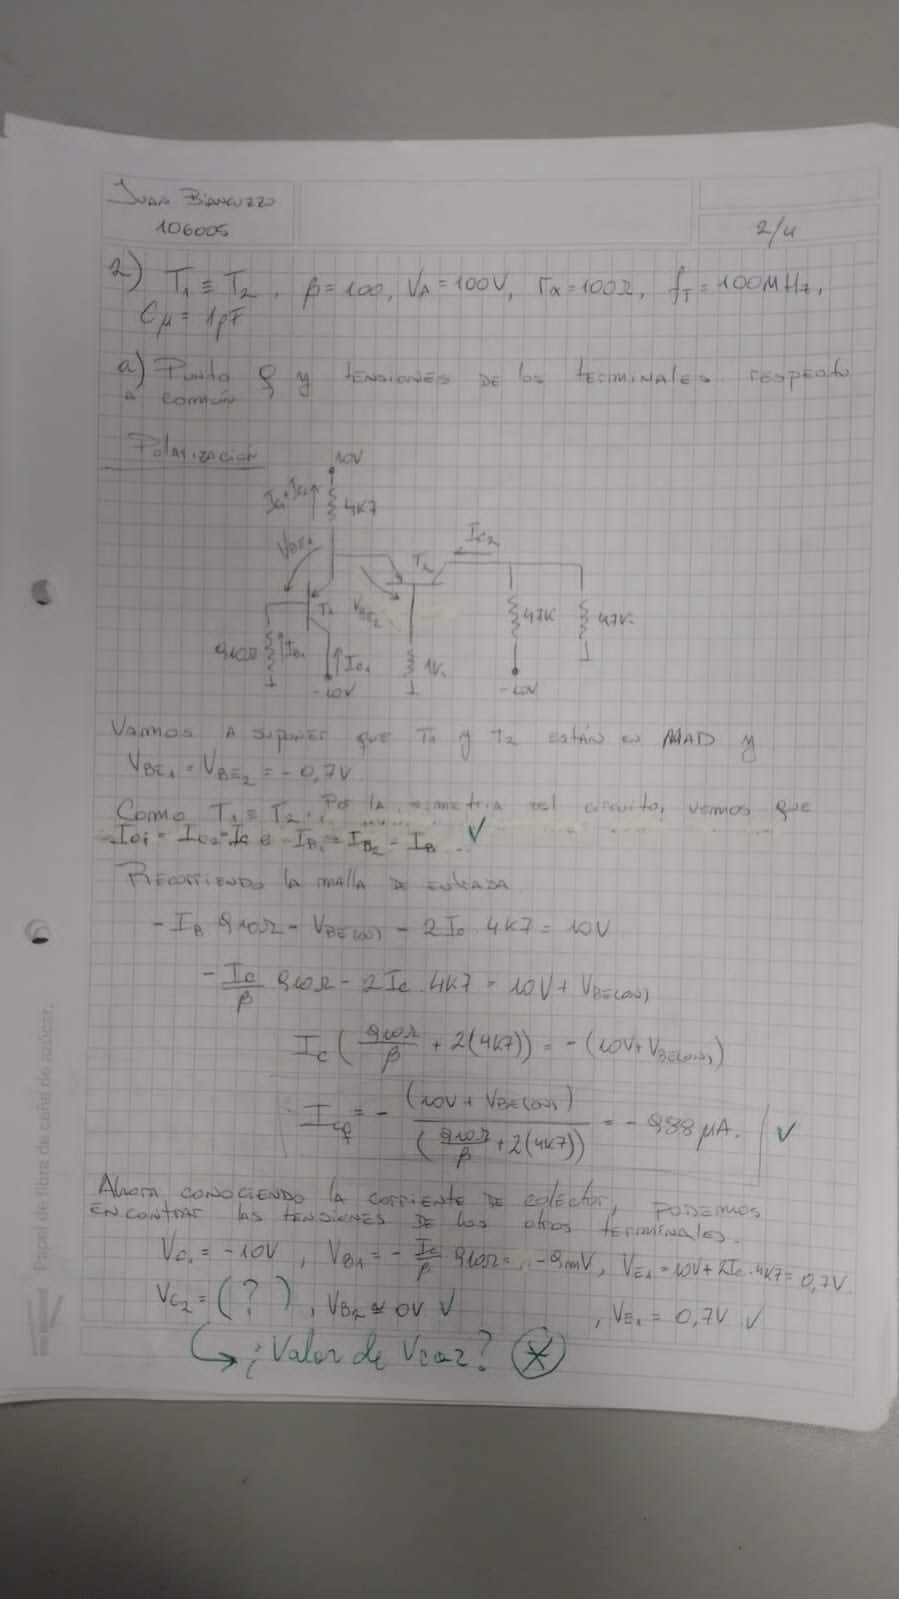 Juan Biancuzzo
106005
2/4
2) T₁ ≡ T₂, β = 100, VA = 100V, rx = 100Ω, fT = 100MHz,
Cμ = 1pF
a) Punto Q y tensiones de los terminales respecto
a común
Polarización
10V
4K7
IC2
VBE1
T2
T1
VBE2
910Ω
IB1
IC1
1K
-10V
-10V
Vamos a suponer que T1 y T2 están en MAD y
VBE1 = VBE2 = -0,7V
Como T1 ≡ T2, Por la simetria del circuito, vemos que
IC1 = IC2 = IC e IB1 = IB2 = IB. ✓
Recorriendo la malla de entrada
-IB 910Ω - VBE(on) - 2IC 4K7 = 10V
-IC/β 910Ω - 2IC 4K7 = 10V + VBE(on)
IC (910Ω/β + 2(4K7)) = -(10V + VBE(on))
ICQ = - (10V + VBE(on)) / (910Ω/β + 2(4K7)) = -988 μA. ✓
Ahora conociendo la corriente de colector, podemos
encontrar las tensiones de los otros terminales.
VC1 = -10V, VB1 = -IC/β 910Ω = -9mV, VE1 = 10V + 2IC 4K7 = 0,7V
VC2 = (?), VB2 ≅ 0V ✓, VE1 = 0,7V ✓
↳ ¿Valor de VCQ2? *
Papel de fibra de caña de azúcar.